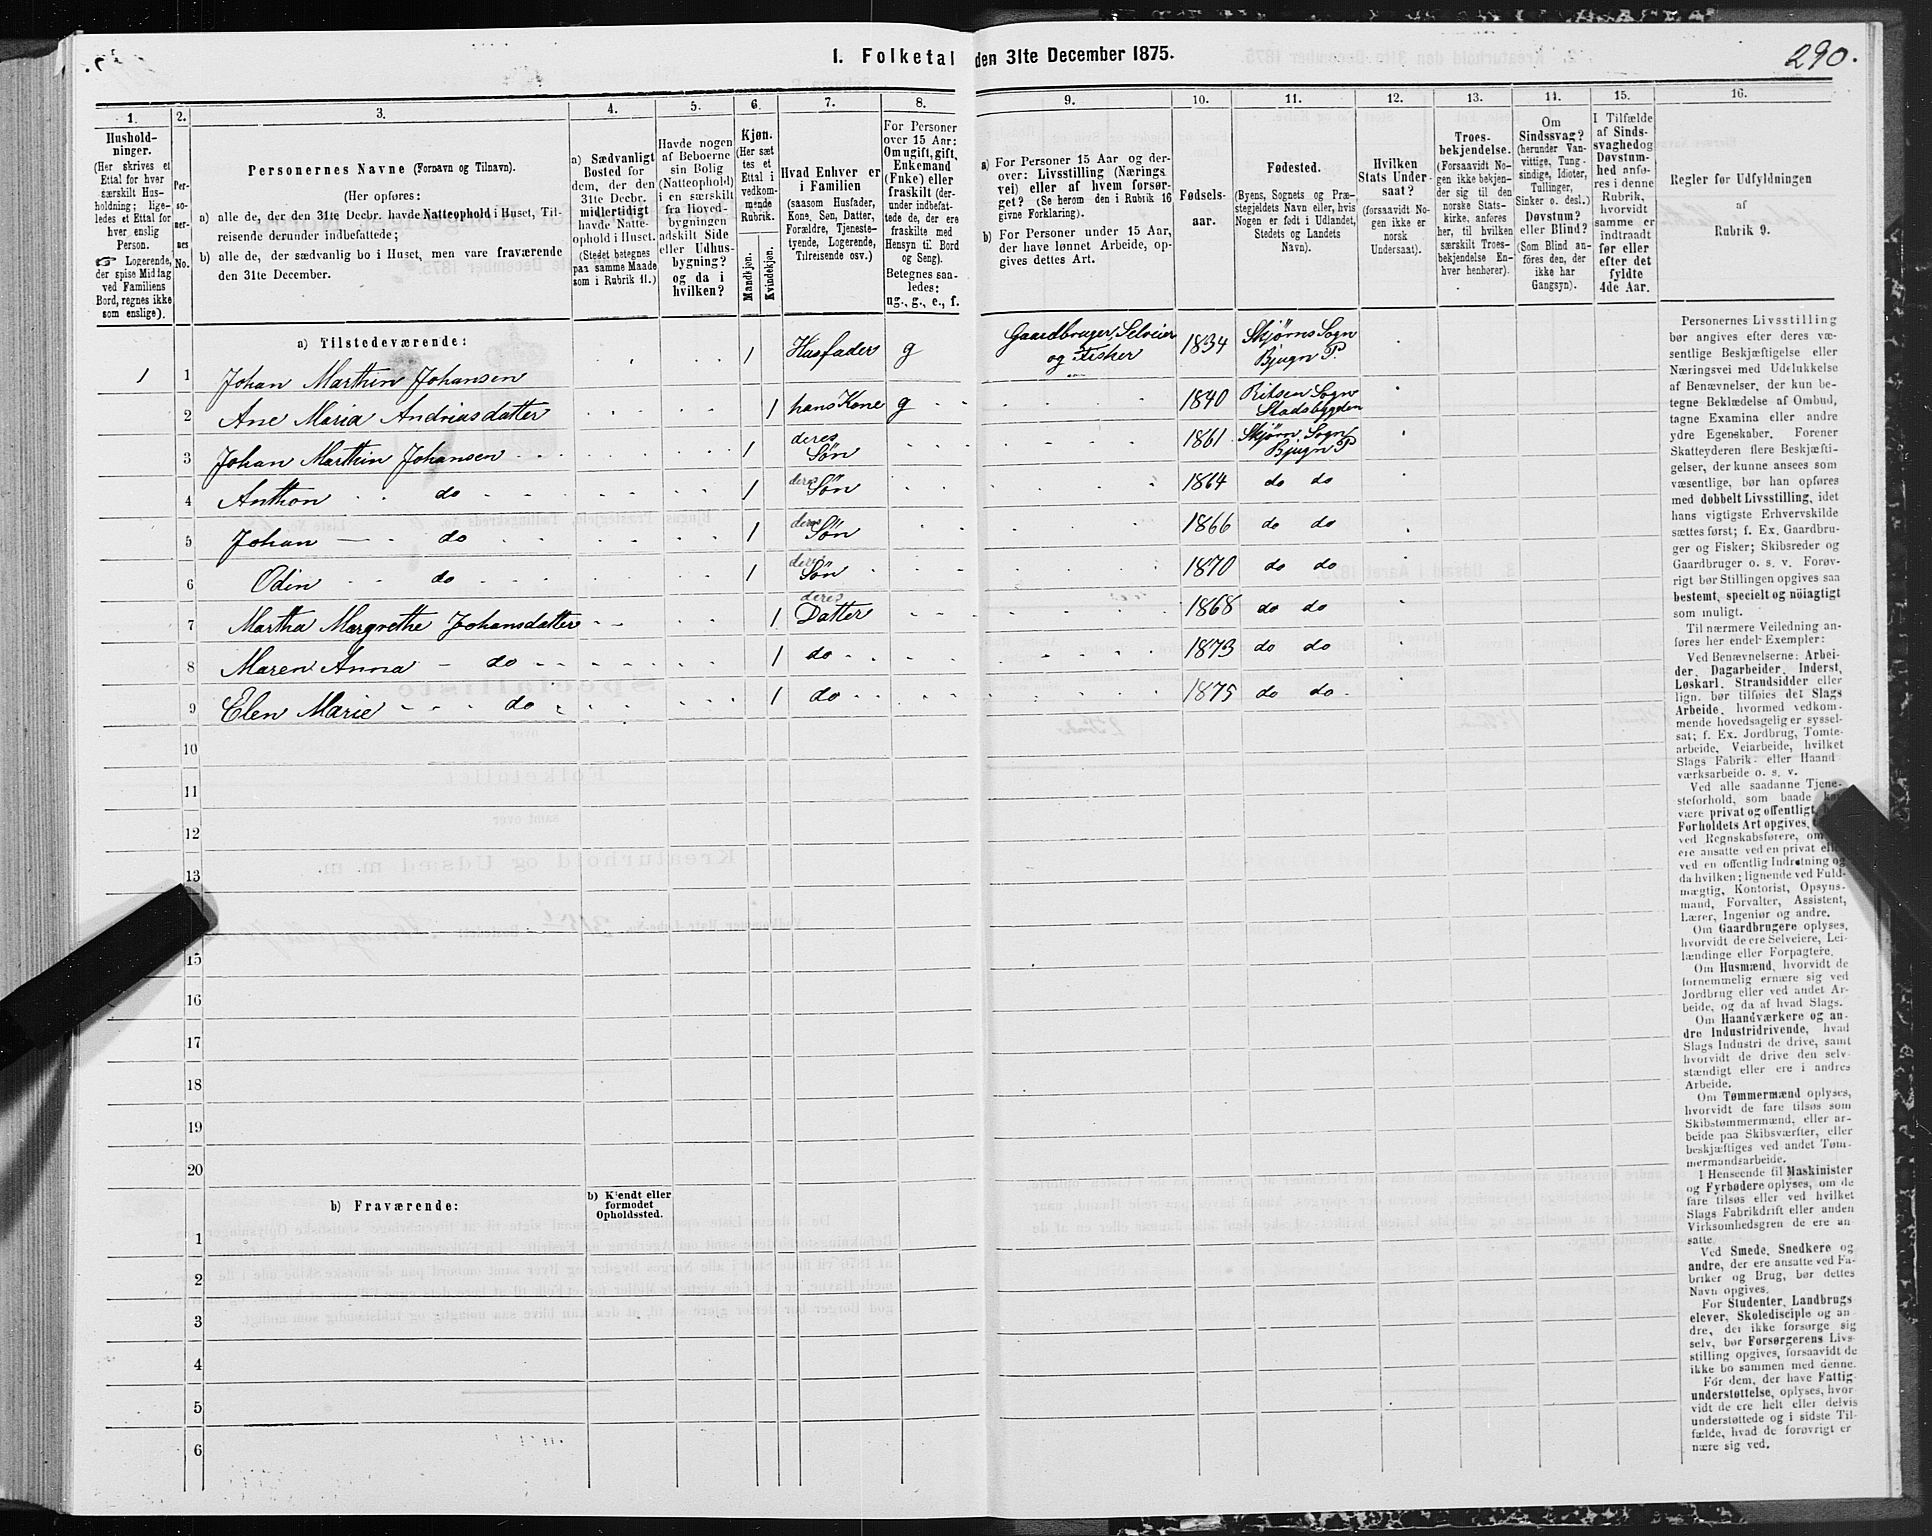 1. Folketal den 31te December 1875.
290.
1.
Hushold-
ninger.
(Her skrives et
Ettal for hver
særskilt Hus-
holdning; lige-
ledes et Ettal for
hver enslig
Person.
Logerende,
der spise Middag
ved Familiens
Bord, regnes ikke
som enslige).
2.
Per-
so-
ner-
nes
No.
3.
Personernes Navne (Fornavn og Tilnavn).
(Her opføres:
a) alle de, der den 31te Decbr. havde Natteophold i Huset, Til-
reisende derunder indbefattede;
b) alle de, der sædvanlig bo i Huset, men vare fraværende
den 31te December.
4.
a) Sædvanligt
Bosted for
dem, der den
31te Decbr.
midlertidigt
havde Natte-
ophold i Huset.
(Stedet betegnes
paa samme Maade
som i Rubrik 11.)
5.
Havde nogen
af Beboerne
sin Bolig
(Natteophold)
i en særskilt
fra Hoved-
bygningen
adskilt Side
eller Udhus-
bygning?
og da i
hvilken?
6.
Kjøn.
(Her sæt
tes et
Ettal i
vedkom-
mende
Rubrik.
Mandkjøn.
Kvindekjøn.
7.
Hvad Enhver er
i Familien
(saasom Husfader,
Kone, Søn, Datter,
Forældre, Tjeneste-
tyende, Logerende,
Tilreisende osv.)
8.
For Personer
over 15 Aar:
Om ugift, gift,
Enkemand
(Enke) eller
fraskilt (der-
under indbefat-
tede de, der ere
fraskilte med
Hensyn til Bord
og Seng).
Betegnes saa-
ledes:
ug., g., e., f.
9.
a) For Personer 15 Aar og der-
over: Livsstilling (Nærings
vei) eller af hvem forsør-
get? (Se herom den i Rubrik 16
givne Forklaring).
b) For Personer under 15 Aar,
der have lønnet Arbeide, op-
gives dettes Art.
10.
Fødsels-
aar.
11.
Fødested.
(Byens, Sognets og Præ-
stegjeldets Navn eller, hvis
Nogen er født i Udlandet,
Stedets og Landets
Navn).
12.
Hvilken
Stats Under-
saat?
(forsaavidt No-
gen ikke er
norsk
Undersaat).
13.
Troes-
bekjendelse.
(Forsaavidt No-
gen ikke bekjen-
der sig til den
norske Stats-
kirke, anføres
her, til hvilken
særskilt Troes-
bekjendelse En-
hver henhører).
14.
Om
Sindssvag?
(herunder Van-
vittige, Tung-
sindige, Idioter,
Tullinger,
Sinker o. desl.)
Døvstum?
eller Blind?
(Som Blind an-
føres den, der
ikke har
Gangsyn).
15.
I Tilfælde
af Sinds-
svaghed og
Døvstum-
hed anfø-
res i denne
Rubrik,
hvorvidt
samme er
indtraadt
før eller
efter det
fyldte
4de Aar.
16.
Regler for Udfyldningen
af
Rubrik 9.
a) Tilstedeværende:
1 1 Johan Marthin Johansen 1 Husfader g Gaardbruger, Selveier og Fisker 1834 Skjørns Sogn Bjugn P
2 Ane Maria Andriasdatter 1 hans Kone g 1840 Ritsen Sogn Stadsbygden
3 Johan Marthin Johansen 1 deres Søn 1861 Skjørn Sogn Bjugn P
4 Anthon do 1 deres Søn 1864 do do
5 Johan do 1 deres Søn 1866 do do
6 Odin do 1 deres Søn 1870 do do
7 Martha Margrethe Johansdatter 1 deres Datter 1868 do do
8 Maren Anna do 1 do 1873 do do
9 Elen Marie do 1 do 1875 do do
10
11
12
13
15
16
17
18
19
20
b) Fraværende:
b) Kjendt eller
formodet
Opholdssted.
1
2
3
4
5
6
Personernes Livsstilling
bør angives efter deres væ-
sentlige Beskjæftigelse eller
Næringsvei med Udelukkelse
af Benævnelser, der kun be-
tegne Beklædelse af Ombud,
tagne Examina eller andre
ydre Egenskaber. Forener
Skatteyderen flere Beskjæfti-
gelser, der kunne ansees som
væsentlige, bør han opføres
med dobbelt Livsstilling, idet
hans vigtigste Erhvervskilde
sættes først; f. Ex. Gaardbru-
ger og Fisker; Skibsreder og
Gaardbruger o. s. v. Forøv-
rigt bør Stillingen opgives saa
bestemt, specielt og nöiagtigt
som muligt.
Til nærmere Veiledning an-
føres her endel Exempler:
Ved Benævnelserne: Arbei-
der, Dagarbeider, Inderst,
Løskarl, Strandsidder eller
lign. bør tilføies det Slags
Arbeide, hvormed vedkom-
mende hovedsagelig er syssel-
sat; f. Ex. Jordbrug, Tomte-
arbeide, Veiarbeide, hvilket
Slags Fabrik- eller Haand
værksarbeide o. s. v.
Ved alle saadanne Tjene-
steforhold, som baade
være privat og offentligt,
Forholdets Art opgives,
ved Regnskabsførere,
ere ansatte ved en privat
ved en offentlig Indretning og
da hvilken; lignende ved Fuld-
mægtig, Kontorist, Opsyns-
mand, Forvalter, Assistent,
Lærer, Ingeniør og andre.
Om Gaardbrugere oplyses,
hvorvidt de ere Selveiere, Lei-
lændinge eller Forpagtere.
Om Husmænd, hvorvidt de
fornemmelig ernære sig ved
Jordbrug eller ved andet Ar-
beide, og da af hvad Slags.
Om Haandværkere og an-
dre Industridrivende, hvad
Slags Industri de drive, samt
hvorvidt de drive den selv-
stændigt eller ere i andres
Arbeide.
Om Tømmermænd oplyses,
hvorvidt de fare tilsøs som
Skibstømmermænd, eller ar-
beide paa Skibsværfter, eller
beskjæftiges ved andet Tøm-
mermandsarbeide.
I Henseende til Maskinister
og Fyrbødere oplyses, om de
fare tilsøs eller ved hvilket
Slags Fabrikdrift eller anden
Virksomhedsgren de ere an-
satte.
Ved Smede, Snedkere og
andre, der ere ansatte ved Fa-
briker og Brug, bør dettes
Navn opgives.
For Studenter, Landbrugs
elever, Skoledisciple og an-
dre, der ikke forsørge sig
selv, bør Forsørgerens Livs-
stilling opgives, forsaavidt de
ikke bo sammen med denne.
For dem, der have Fattig-
understøttelse, oplyses, hvor-
vidt de ere helt eller delvis
understøttede og i sidste Til-
fælde, hvad de forøvrigt er
nære sig ved.